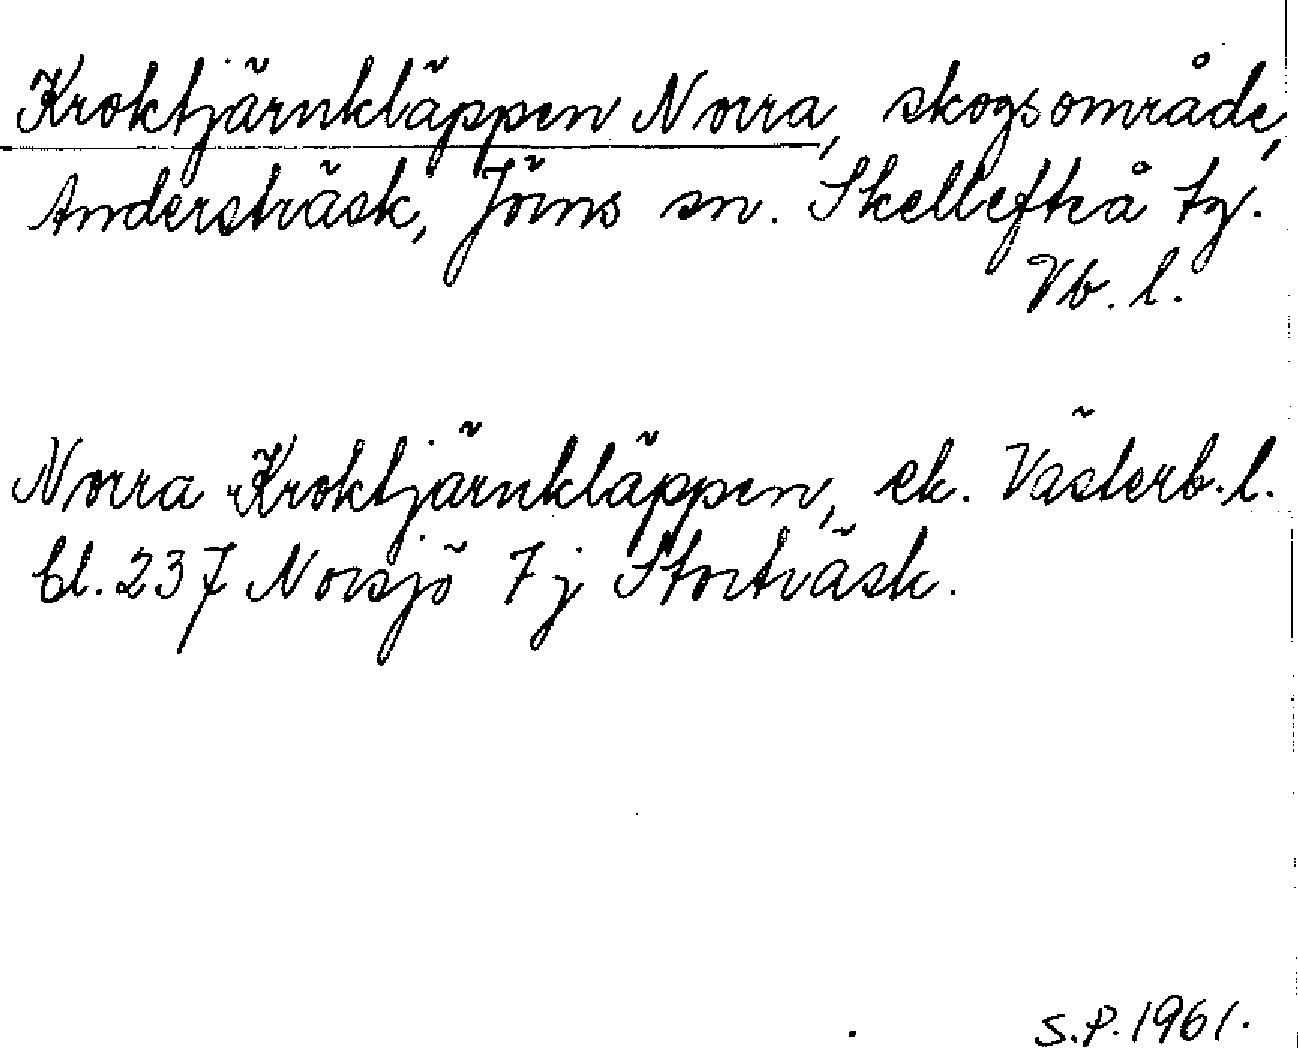 Kroktjärnkläppen Norra, skogsområde,
Andersträsk, Jörns sn. Skellefteå tg.
Vb. l.
Norra Kroktjärnkläppen, ek. Västerb. l.
bl. 237 Norsjö 7j Storträsk.
S.P. 1961.